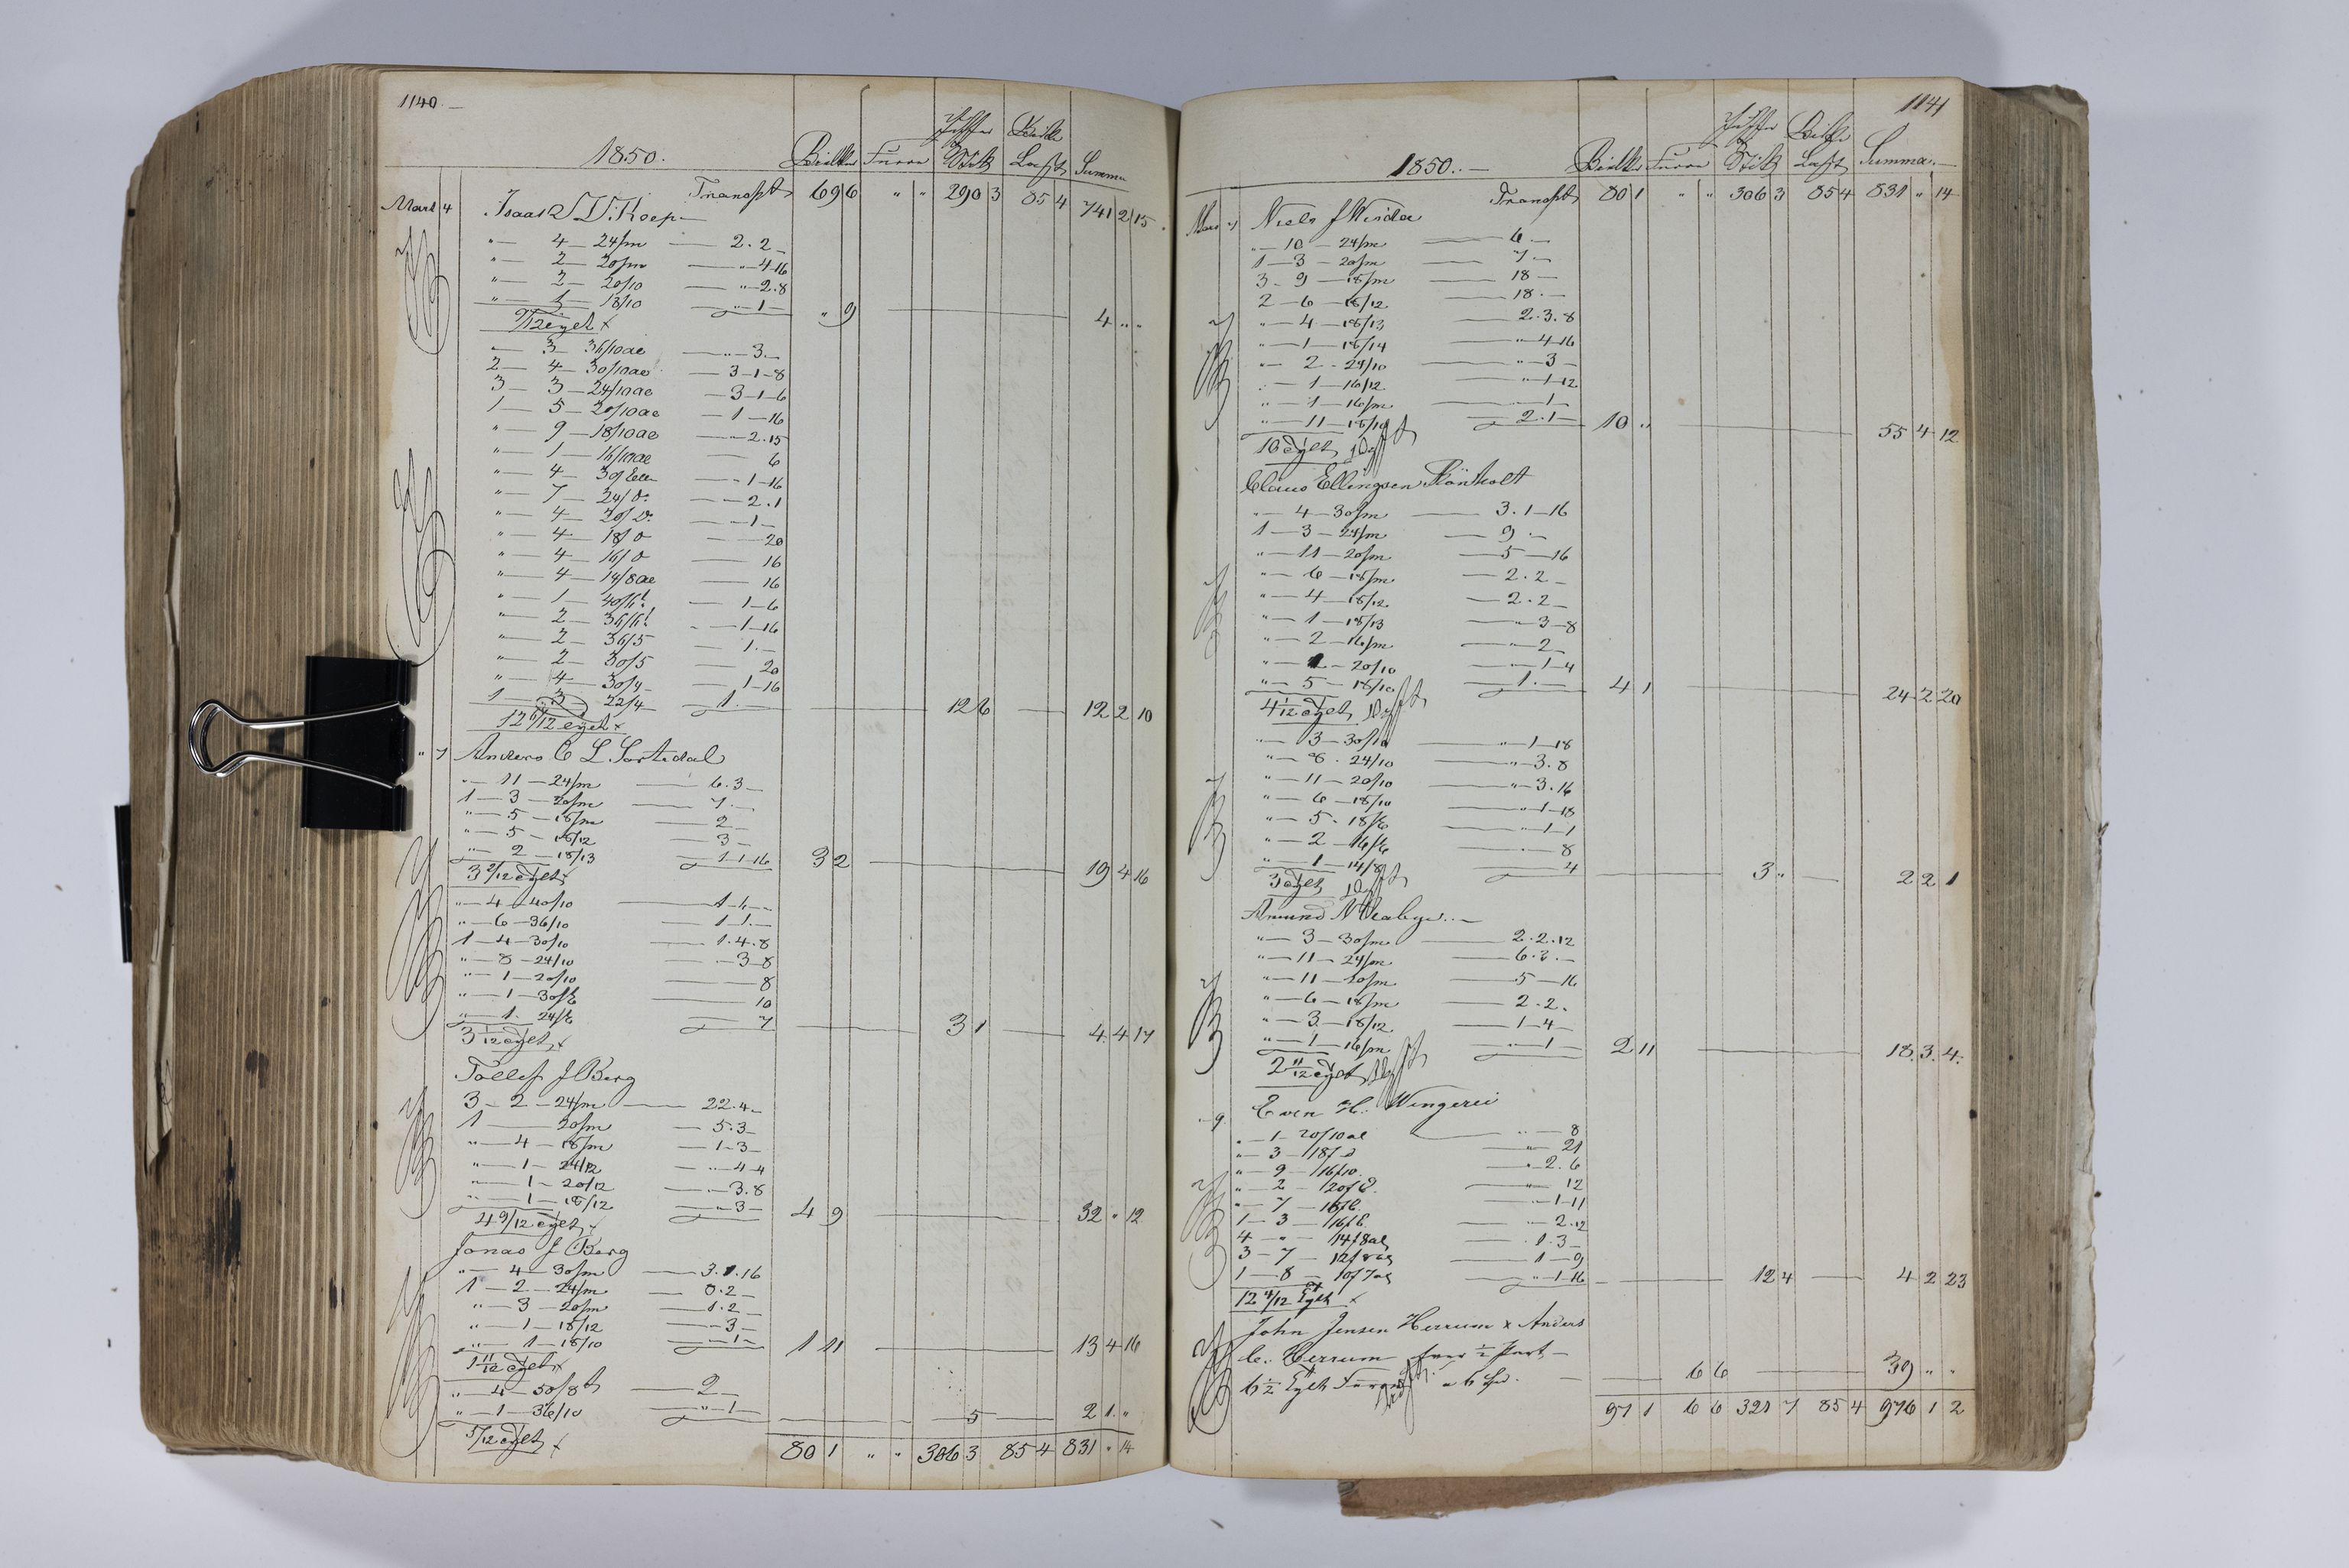 1140.—
1850.
Bielker Furrer Stik Last Summa
Transpt 69 6 " " 290 3 85 4 741 2 15
Mart 4
"— 4— 24/m —— 2.2—
"— 2— 20/m —— "—4-16
"— 2— 20/10 —— "—2.8
"— 1— 18/10 —— "—1—
9/12 eylt x " 9 4 " "
"— 3— 36/10ae —— "—3.—
2— 4— 30/10ae —— 3-1-8
3— 3— 24/10ae —— 3-1-6
1— 5— 20/10ae —— 1—16
"— 9— 18/10ae —— "—2.15
"— 1— 16/10ae —— 6
"— 4— 30/ Ellen —— "1-16
"— 7— 24/ D: —— "—2.1
"— 4— 20/ D: —— "—1—
"— 4— 18/ D —— 20
"— 4— 16/ D —— 16
"— 4— 14/8ae —— 16
"— 1— 40/6! —— 1-6
"— 2— 36/6! —— "—1-16
"— 2— 36/5 —— 1.—
"— 2— 30/5 —— 20
"— 4— 30/4— —— 1-16
1— 3— 22/4— —— 1.—
12 6/12 eylt x 12 6 12 2 10
" 7 Anders C L Sortedal
"— 11— 24/m —— 6.3—
1— 3— 20/m —— 7.—
"— 5— 18/m —— 2—
"— 5— 18/12 —— 3—
"— 2— 18/13 —— 1-1-16
3 2/12 eylt x 3 2 19 4 16
"— 4— 40/10 —— 1-1.—
"— 6— 36/10 —— 1 1.—
1— 4— 30/10 —— 1.4.8
"— 8— 24/10 —— "—3-8
"— 1— 20/10 —— 8
"— 1— 30/E —— 10
"— 1.— 24/E —— 7
3 1/12 eylt x 3 1 4 4 17
Tollef J Berg
3— 2— 24/m —— 22.4—
1 —— 20/m —— 5.3—
"— 4— 18/m —— 1-3—
"— 1— 24/12 —— "—4-4
"— 1— 20/12 —— "—3.8
"— 1— 18/12 —— "—3—
4 9/12 eylt x 4 9 32 " 12
Jonas J Berg
"— 4— 30/m —— 3.1.16
1— 2— 24/m —— 8.2—
"— 3— 20/m —— 1.2—
"— 1— 18/12 —— "—3—
"— 1— 18/10 —— "—1—
1 11/12 eylt x 1 11 13 4 16
"— 4— 50/8 —— 2—
"— 1— 36/10 —— "—1—
5/12 eylt x 5 2 1 "
80 1 " " 306 3 85 4 831 " 14
1141
1850.—
Bielker Furrer Stik Last Summa.—
Transpt 80 1 " " 306 3 85 4 831 " 14
Niels J
"— 10— 24/m —— 6.—
1— 3— 20/m —— 7.—
3— 9— 18/m —— 18—
2— 6— 18/12 —— 18.—
"— 4— 18/13 —— 2.3.8
"— 1— 18/14 —— "—4-16
"— 2— 24/10 —— "—3—
"— 1— 16/12 —— "—1-12
"— 1— 16/m —— "—1—
"— 11— 18/10 —— 2.1—
10 eylt 10 " 55 4 12
Claus Ellingsen Rönholt
"— 4— 30/m —— 3.1—16
1— 3— 24/m —— 9.—
"— 11— 20/m —— 5—16
"— 6— 18/m —— 2.2—
"— 4— 18/12 —— 2.2—
"— 1— 18/13 —— "—3-8
"— 2— 16/m —— "—2—
"— 1— 20/10 —— "—1-4
"— 5— 18/10 —— 1.—
4 1/12 eylt 4 1 24 2 20
"— 3— 30/10 —— "—1-18
"— 8— 24/10 —— "—3.8
"— 11— 20/10 —— "—3.16
"— 6— 18/10 —— "—1-18
"— 5— 18/E —— "—1-1
"— 2— 16/E —— "—8
"— 1— 14/8 —— 4
3 eylt 3 " 2 2 1
Amund N
"— 3— 30/m —— 2.2.12
"— 11— 24/m —— 6.3.—
"— 11— 20/m —— 5—16
"— 6— 18/m —— 2.2.
"— 3— 18/12 —— 1-4—
"— 1— 16/m —— "—1—
2 11/12 eylt 2 11 18 3 4
" 9. Even H: Wingerei
"— 1— 20/10ae —— "—8
"— 3— 18/ D —— "—21
"— 9— 16/10 —— "—2.6
"— 2— 20/E. —— "—12
"— 7— 18/E. —— "—1-11
1— 3— 16/E. —— "—2.12
4— "— 14/8ae —— 1.3—
3— 7— 12/8ae —— 1—9
1— 8— 10/7ae —— "—1-16
12 4/12 Eylt x 12 4 4 2 23
John Jensen Herrum & Anders
C. Herrum for 1/2 Part—
6 1/2 Eylt Furrer a 6 Sp. 6 6 39 " "
97 1 6 6 321 7 85 4 976 1 2